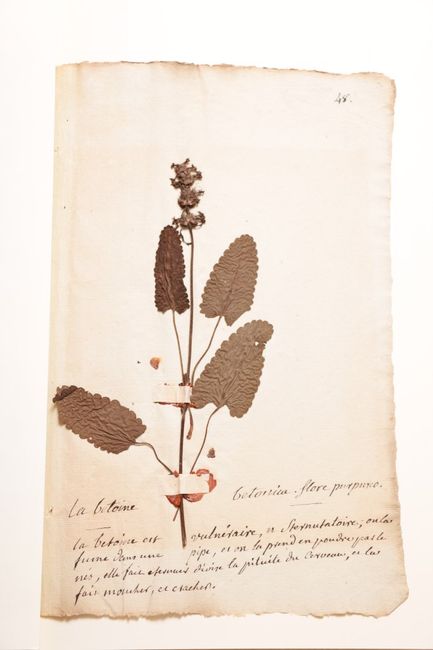 48.
la betoine betonica. flore purpureo.
la betoine est vulnéraire, et sternutatoire, on la
fume dans une pipe, et on la prend en poudre par le
nés, elle fait eternuer divise la pituite du Cerveau, et la
fait moucher, et cracher.